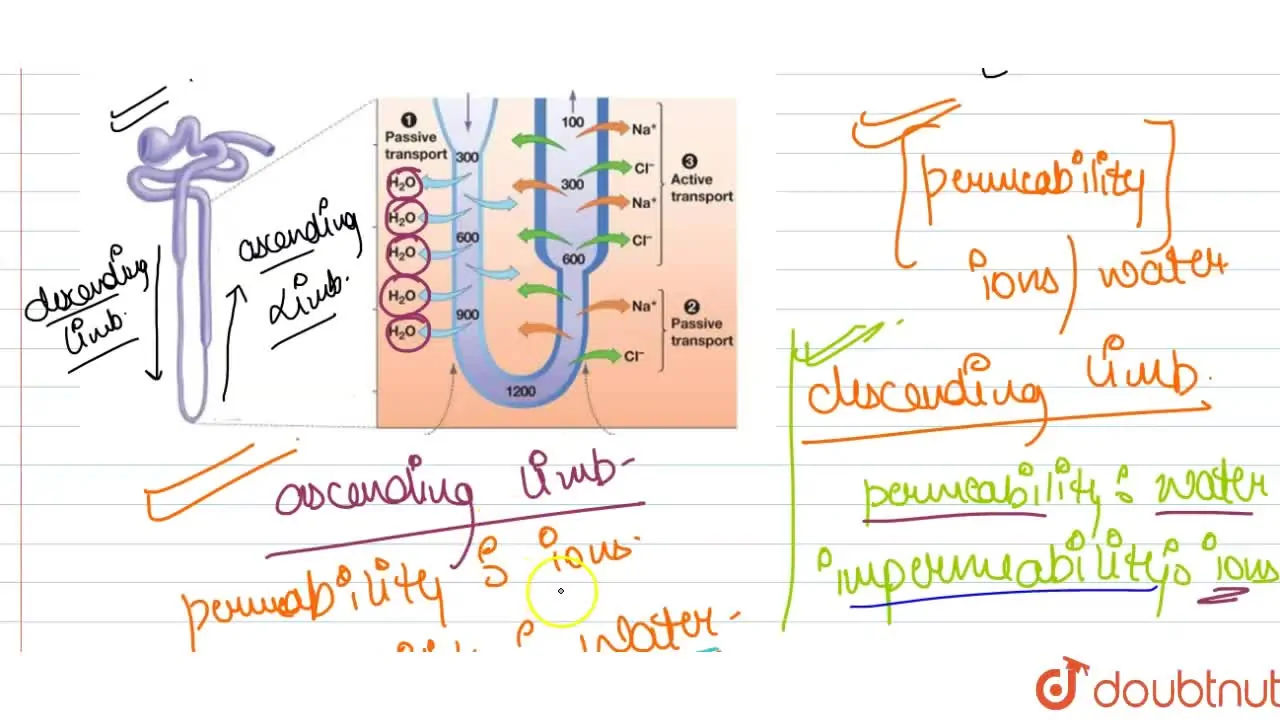 descending
limb.
ascending
Limb.
1
Passive
transport
H₂O
H₂O
H₂O
H₂O
H₂O
300
600
900
1200
100
300
600
Na⁺
Cl⁻
Na⁺
Cl⁻
Na⁺
Cl⁻
3
Active
transport
2
Passive
transport
[permeability]
ions / water
descending limb.
permeability : water
impermeability : ions
ascending limb-
permability : ions.
: water-
doubtnut